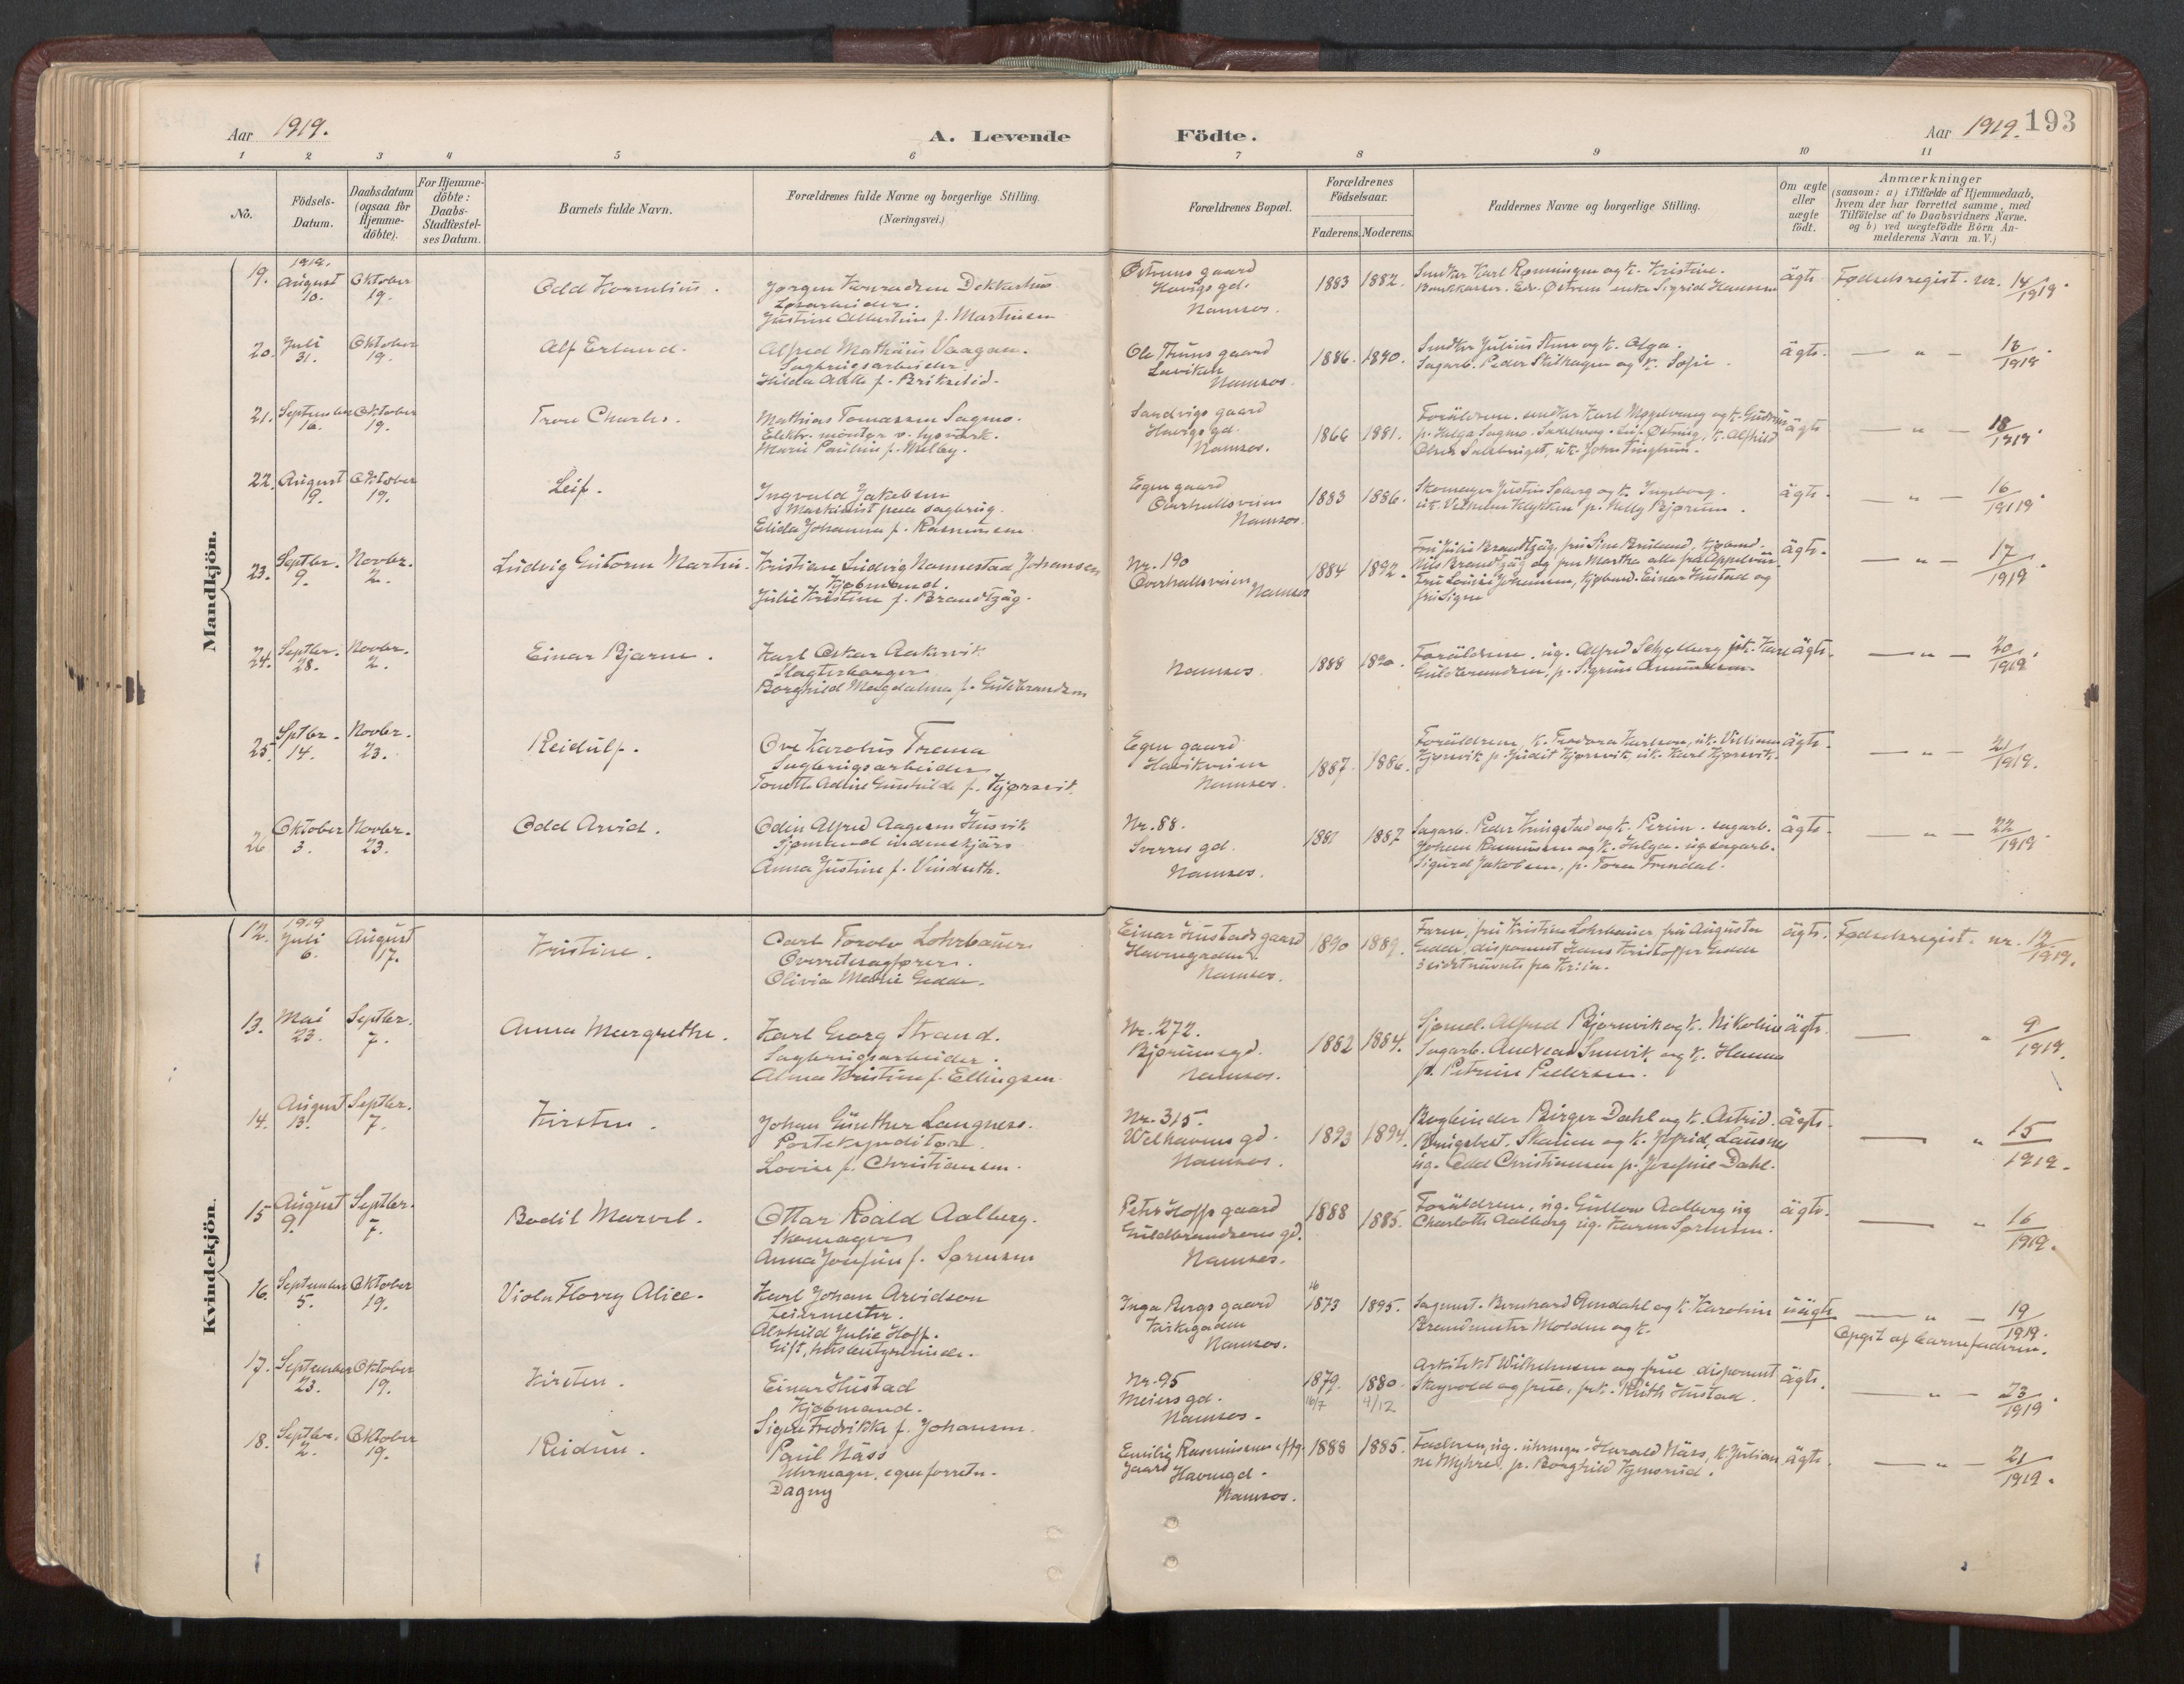 Aar 1919.
A. Levende
Födte.
Aar 1919. 193
1 2 3 4 5 6 7 8 9 10 11
No.
Födsels-Datum.
Daabsdatum (ogsaa for Hjemme-döbte).
For Hjemme-döbte: Daabs-Stadfæstel-ses Datum.
Barnets fulde Navn.
Forældrenes fulde Navne og borgerlige Stilling.
(Næringsvei.)
Forældrenes Bopæl.
Forældrenes Födselsaar.
Faderens. Moderens.
Faddernes Navne og borgerlige Stilling.
Om ægte eller uægte födt.
Anmærkninger
(saasom: a) i Tilfælde af Hjemmedaab,
hvem der har forrettet samme, med
Tilföielse af to Daabsvidners Navne,
og b) ved uægtefödte Börn An-
melderens Navn m. V.)
Mandkjön.
19. 1919. August 10. Oktober 19.
Odd Kornelius.
Jørgen Konradsen Dekkerhus
Justine Albertine f. Martinsen
Østrums gaard
Havigs gd.
Namsos.
1883 1882.
Snedker Karl Rønningen og k. Kristine.
Østrum enke Sigrid Hansen
ägte
Fødselsregist. nr. 14/1919.
20. Juli 31. Oktober 19.
Alf Erland.
Alfred Mathäus Vaagan.
Sagbrugsarbeider
Ole Thuns gaard
Namsos.
1886. 1890.
Snedker Julius Stene og k. Olga.
Sagarb. Peder og k. Sofie.
ägte.
— " — 13/1919.
21. September 16. Oktober 19.
Tron Charles.
Mathias Tomassen Sagmo.
Elektr. montør v. lysverk.
Marie Pauline f. Melby.
Sandvigs gaard
Havigs gd.
Namsos.
1866 1881.
Foräldrene. snedker Karl og k. Gudrun
p. Helga Sagmo. k. Alfhild
Olsen
ägte
— " — 18/1919.
22. August 9. Oktober 19.
Leif.
Ingvald Jakobsen
Maskinist paa sagbrug.
Elida Johanna f. Rasmussen
Egen gaard
Overhallsveien
Namsos.
1883 1886.
Skomager Justin Solberg og k. Ingeborg.
p. Nelly Bjørum.
ägte.
— " — 16/1919.
23. Septbr. 9. Novbr. 2.
Ludvig Gutorm Martin.
Kristian Ludvig Nannestad Johansen
Kjøbmand.
Julie Kristine f. Brandtzäg.
Nr. 190
Overhallsveien
Namsos
1884 1892.
Fru Julie Brandtzäg, fru Kjøbmd.
Nils Brandtzäg og fru Martha alle fra Appelvär
Fru Louise Johansen, Kjøbmd. Einar Hustad og
fru Signe
ägte.
— " — 17/1919.
24. Septbr. 28. Novbr. 2.
Einar Bjarne.
Karl Oskar Aakervik
Borghild Magdalena f. Guldbrandsen
Namsos.
1888 1890.
Foräldrene. ug. Alfred
Guldbrandsen. p. Sigrun
ägte.
— " — 20/1919.
25. Sptbr. 14. Novbr. 23.
Reidulf.
Ove Karolius Trema
Sagbrugsarbeider
Egen gaard
Havikveien
Namsos.
1887 1886.
Foräldrene, k. Teodora Karlsen, uk. Villiam
p. Judit uk. Karl
ägte.
— " — 21/1919.
26. Oktober 3. Novbr. 23.
Odd Arvid.
Odin Alfred Aagesen Husvik
Sjømand indenskjärs
Anna Justine f.
Nr. 88.
Sverres gd.
Namsos.
1881 1887
Sagarb. Peder Kringstad og k. sagarb.
Johan Rasmussen og k. Helga. ug sagarb.
Sigurd Jakobsen, p. Tora
ägte
— " — 22/1919.
Kvindekjön.
12. 1919 Juli 6. August 17.
Kristine.
Carl Torolv Lohrbauer
Overretssagfører.
Olivia Marie Gedde.
Einar Hustads gaard
Havnegaden
Namsos.
1890 1889.
Faren, fru Kristine Lohrbauer fru Augusta
Gedde, disponent Hans Kristoffer Gedde
3 sidstnævnte fra Kr.ia.
ägte.
Fødselsregist. nr. 12/1919.
13. Mai 23. Septbr. 7.
Anna Margrethe.
Karl Georg Strand.
Sagbrugsarbeider.
Alma Kristine f. Ellingsen.
Nr. 272.
Bjørums gd.
Namsos.
1882 1884.
Sjømd. Alfred Bjørnvik og k. Nikoline
Sagarb. Andreas og k. Hanna
p. Petrine Pedersen.
ägte.
— " 9/1919.
14. August 13. Septbr. 7.
Kirsten.
Johan Günther Langness.
Postekspeditør
Lovise f. Christiansen.
Nr. 315.
Welhavens gd.
Namsos.
1893 1894.
Bogbinder Birger Dahl og k. Astrid.
ug. Odd Christiansen p. Josefine Dahl.
ägte.
— " 15/1919.
15 August 9. Septbr. 7.
Bodil Marvel.
Ottar Roald Aalberg.
Skomager
Anna Josefine f. Sørensen
Peter Hoffs gaard
Guldbrandsens gd.
Namsos.
1888 1885.
Foräldrene, ug. Gullow Aalberg ug
Charlotte Aalberg ug. Karen Sørensen.
ägte.
— " 16/1919.
16. September 5. Oktober 19.
Viola Florry Alice.
Karl Johan Arvidson
Feiermester.
Alvhild Julie Hoff.
Gift, husbestyrerinde.
Inga Bergs gaard
Kirkegaden
Namsos.
16 1873 1895.
Sagmst. Bernhard og k. Karoline
Brandmester Molden og k.
uägte
— " — 19/1919.
Opgit af barnefaderen.
17. September 23. Oktober 19.
Kirsten.
Einar Hustad
Kjøbmand.
Signe Fredrikke f. Johansen.
Nr. 95
Meiers gd.
Namsos.
1879. 16/7 1880 4/12
Arkitekt Wilhelmsen og frue disponent
Skagvold og frue, frk. Ruth Hustad.
ägte.
— " — 23/1919.
18. Septbr. 2. Oktober 19.
Reidun.
Paul Näss
Uhrmager, egen forretn.
Dagny
Emilie Rasmussens eftf.
gaard Havnegd.
Namsos.
1888 1885.
Faderen, ug. uhrmager Harald Näss, k. Julian
ne Myhre, p. Borghild
ägte.
— " — 21/1919.